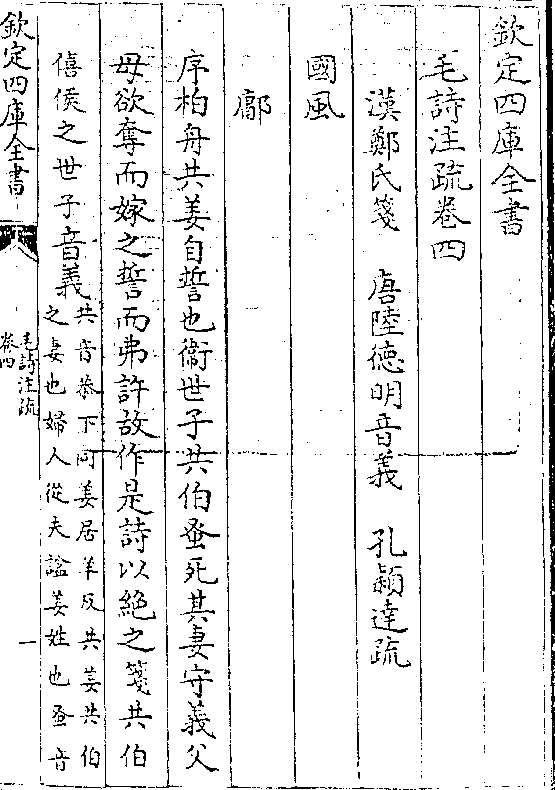 欽定四庫全書
毛詩注疏卷四
漢鄭氏箋　唐陸德明音義　孔穎達疏
國風
鄘
序柏舟共姜自誓也衞世子共伯蚤死其妻守義父
母欲奪而嫁之誓而弗許故作是詩以絕之箋共伯
僖侯之世子音義共音恭下同姜居羊反共姜共伯
之妻也婦人從夫諡姜姓也蚤音
欽定四庫全書
毛詩注疏
卷四
一